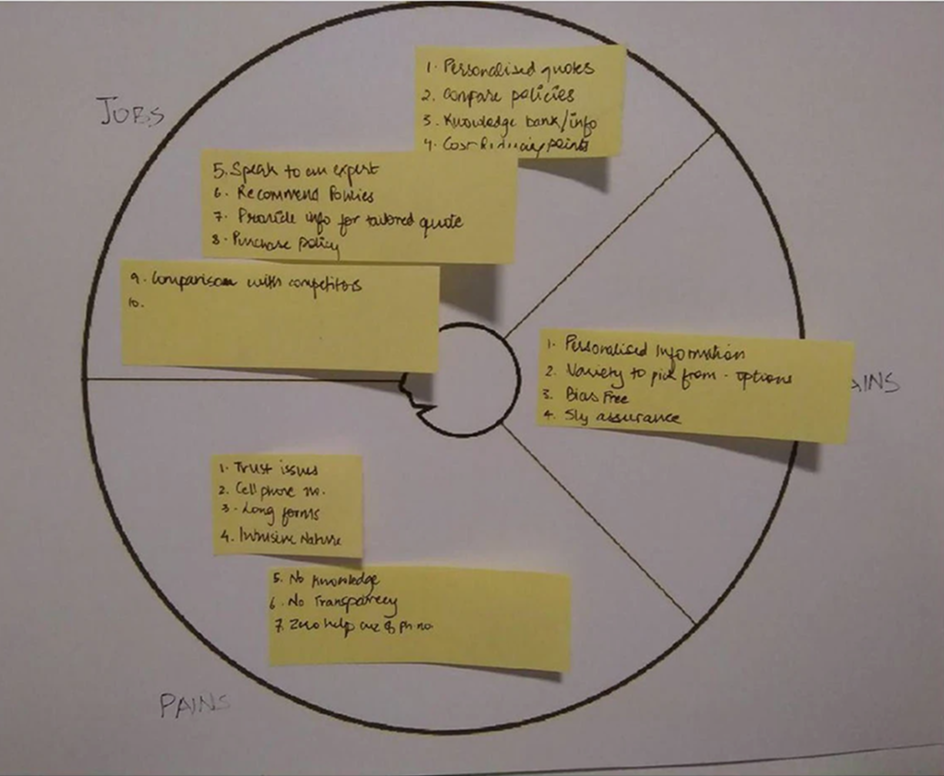 JOBS
1. Personalised quotes
2. Compare policies
3. Knowledge bank/info
4. Cost points
5. Speak to an expert
6. Recommend Policies
7. Provide info for tailored quote
8. Purchase policy
9. Comparison with competitors
10.
1. Personalised Information
2. Variety to pick from - options
3. Bias Free
4. Sly assurance
AINS
1. Trust issues
2. Cell phone no.
3. Long forms
4. Intrusive Nature
5. No knowledge
6. No Transparecy
7. Zero help ph no
PAINS